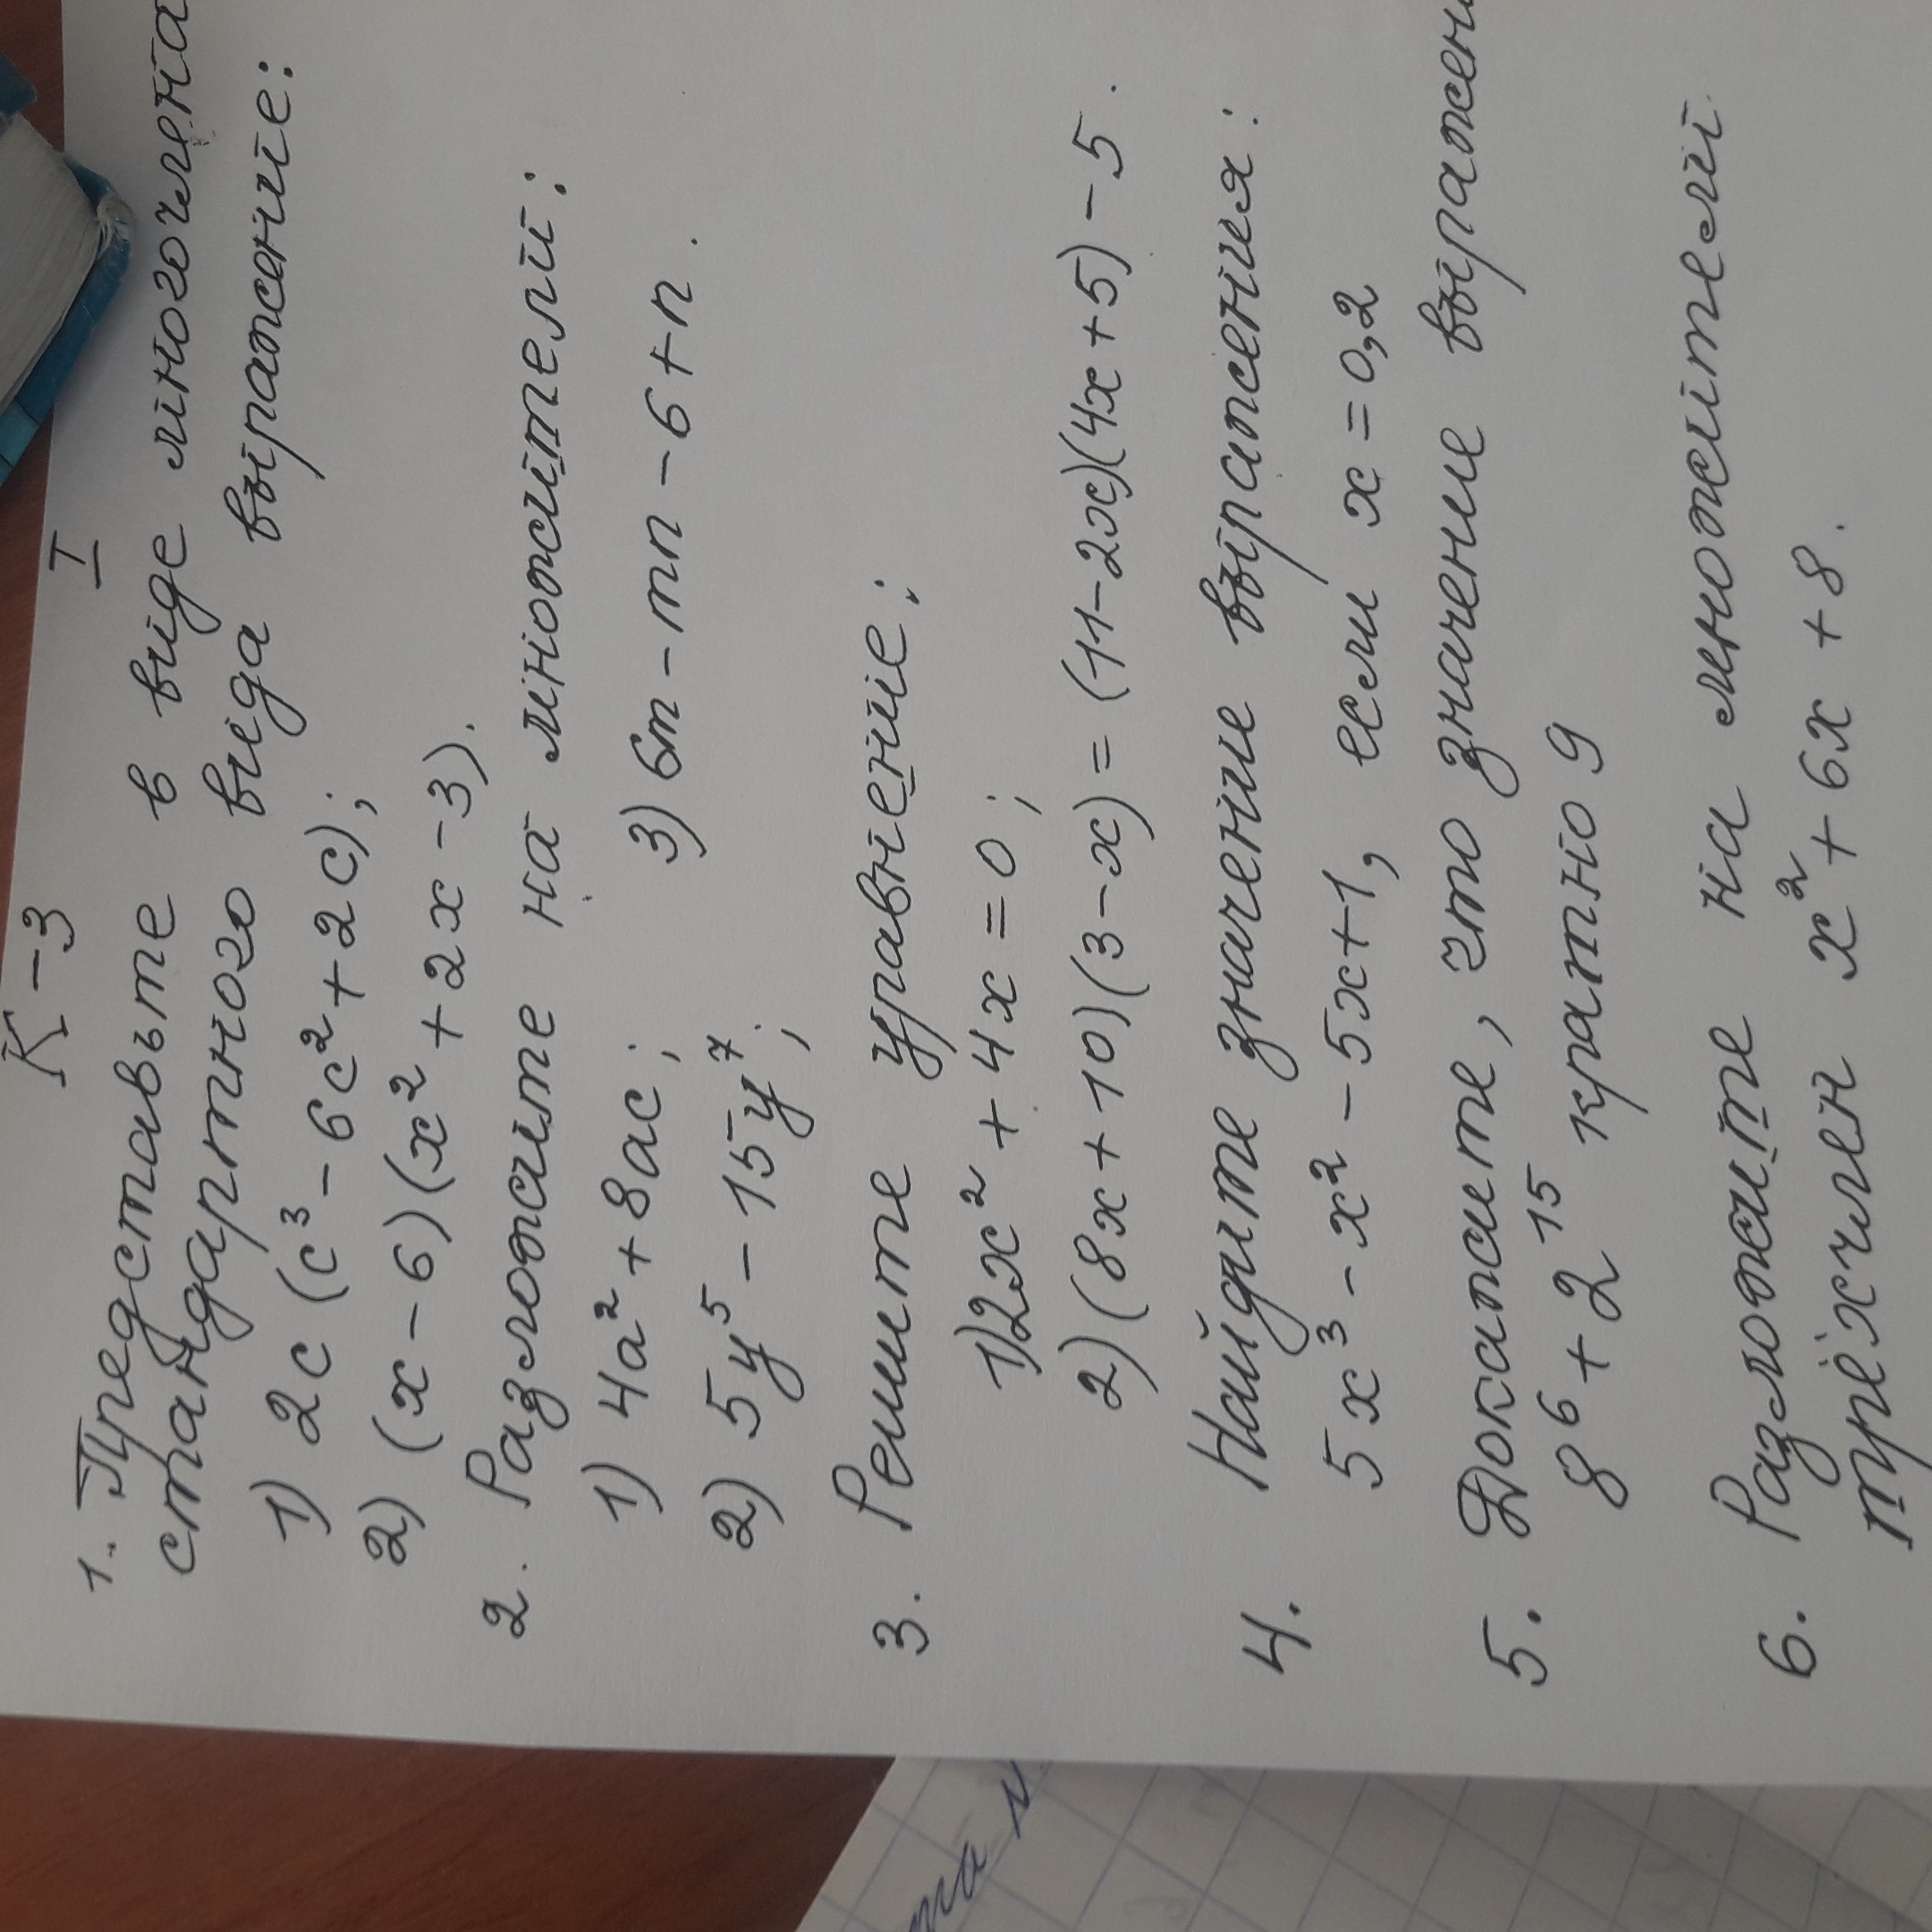 К-3 I
1. Представьте в виде многочлена
стандартного вида выражение:
1) 2c(c³ - 6c² + 2c);
2) (x - 6)(x² + 2x - 3).
2. Разложите на множители:
1) 4a² + 8ac; 3) 6m - mn - 6 + n.
2) 5y⁵ - 15y⁷;
3. Решите уравнение:
1) 2x² + 4x = 0;
2) (8x + 10)(3 - x) = (11 - 2x)(4x + 5) - 5.
4. Найдите значение выражения:
5x³ - x² - 5x + 1, если x = 0,2
5. Докажите, что значение выражен
8⁶ + 2¹⁵ кратно 9
6. Разложите на множители
трёхчлен x² + 6x + 8.
та